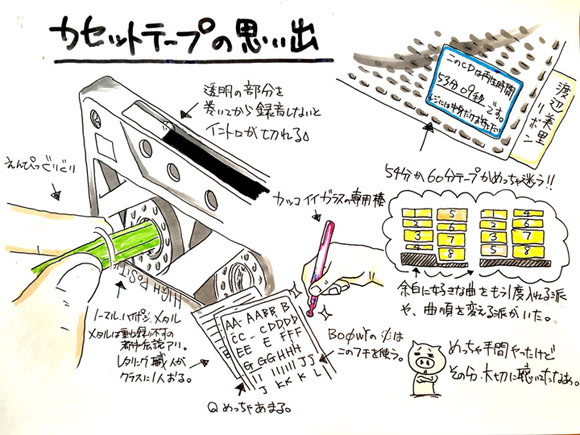 カセットテープの思い出
透明の部分を
巻いてから録音しないと
イントロが切れる
えんぴつぐりぐり
このCDは再生時間
53分09秒です。
渡辺美里
リボン
54分か60分テープかめっちゃ迷う!!
カッコイイガラスの専用棒
1
2
3
4
5
6
7
8
1
2
3
5
4
6
7
8
余白に好きな曲をもう1度入れる派
や、曲の順を変える派がいた。
HIGH POSI
ノーマル、ハイポジ、メタル
メタルは
都市伝説アリ。
レタリング職人が
クラスに1人おる。
AA AABB B
CC CDDDD
EE E FFF
GGGHHH
J KKKL
BOØWYの
このフチを使う。
Qめっちゃあまる。
めっちゃ手間やったけど
その分、大切に聴いてたなぁ。